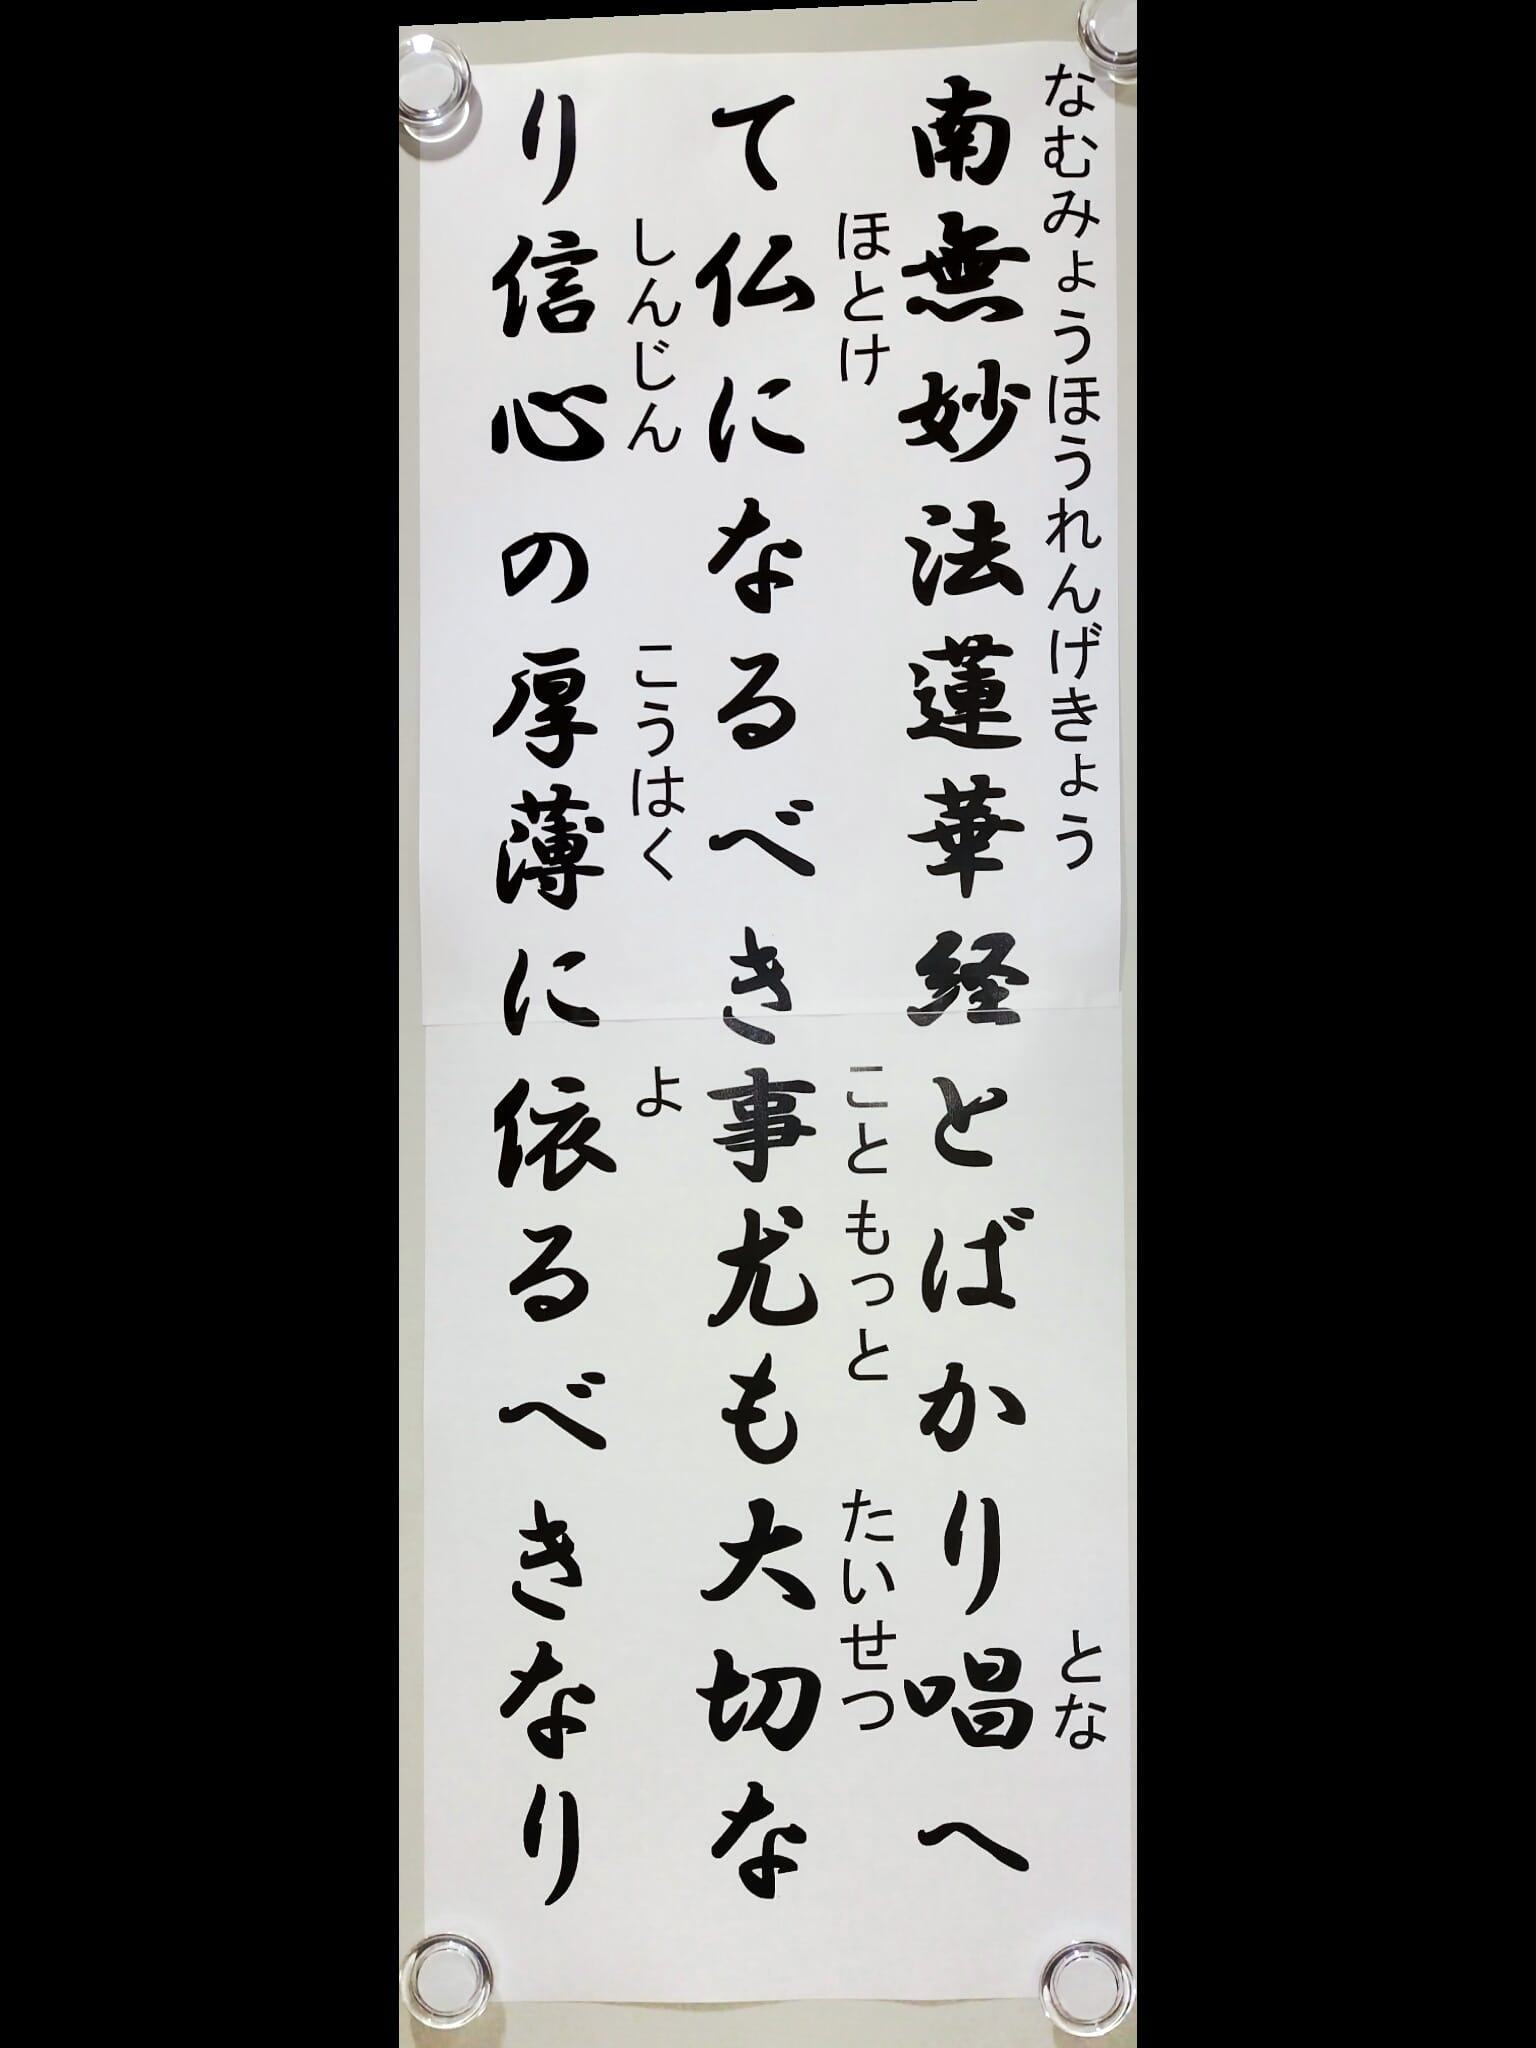 なむみょうほうれんげきょう とな
南無妙法蓮華経とばかり唱へ
ほとけ こと もっと たいせつ
て仏になるべき事尤も大切な
しんじん こうはく よ
り信心の厚薄に依るべきなり